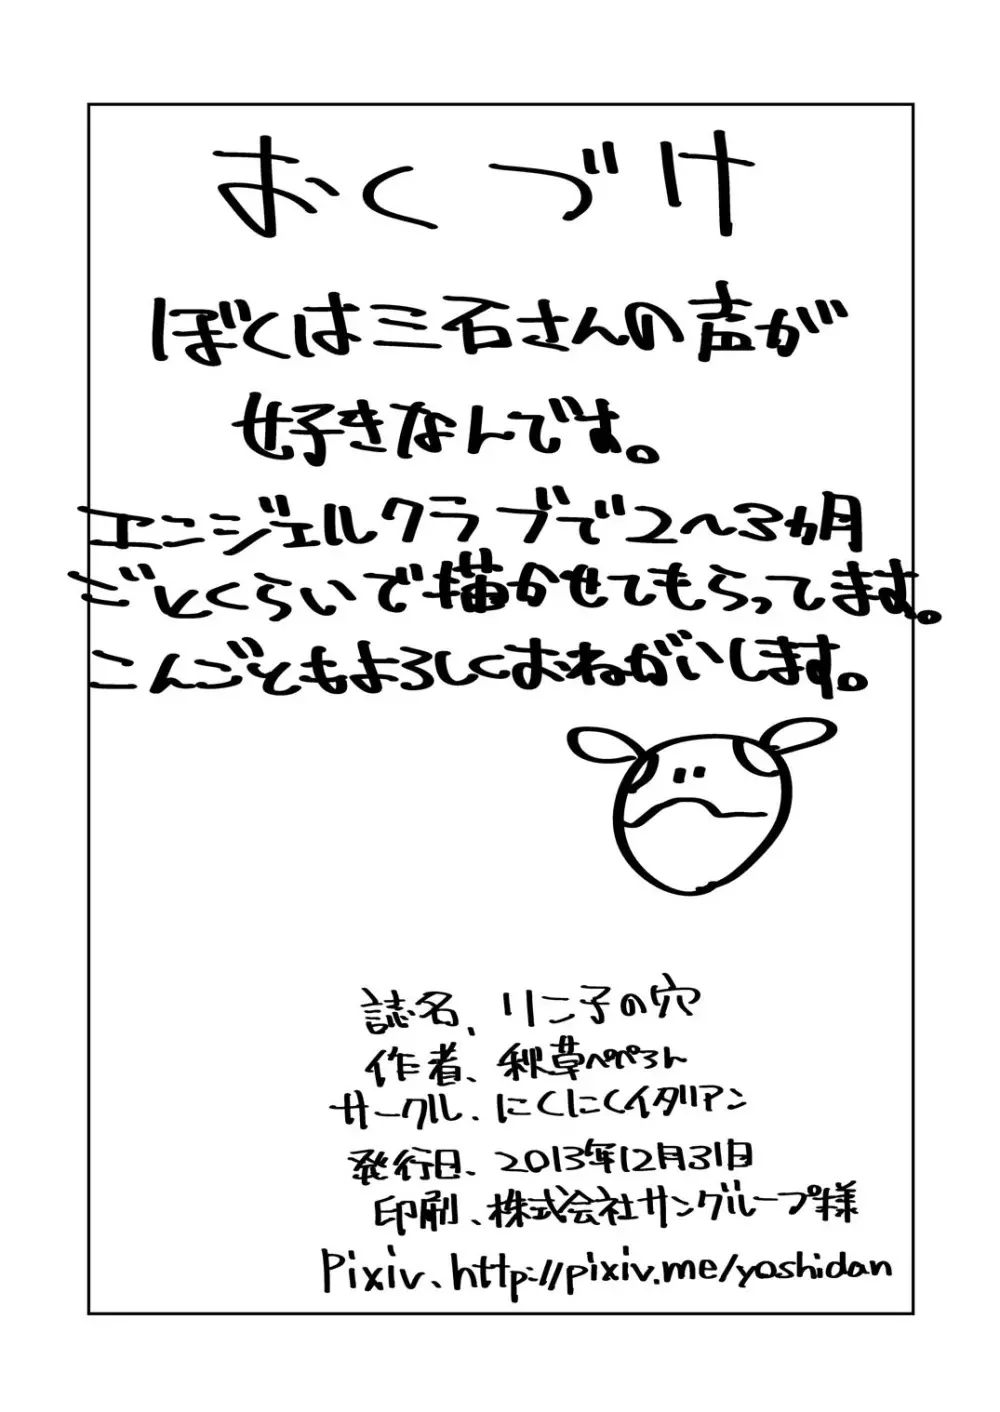 おくづけ
ぼくは三石さんの声が
好きなんです。
エンジェルクラブで2~3ヵ月
ごとくらいで描かせてもらってます。
こんごともよろしくおねがいします。
誌名、リン子の穴
作者、秋草ぺぺろん
サークル、にくにくイタリアン
発行日、2013年12月31日
印刷、株式会社サングループ様
Pixiv、http://pixiv.me/yoshidan